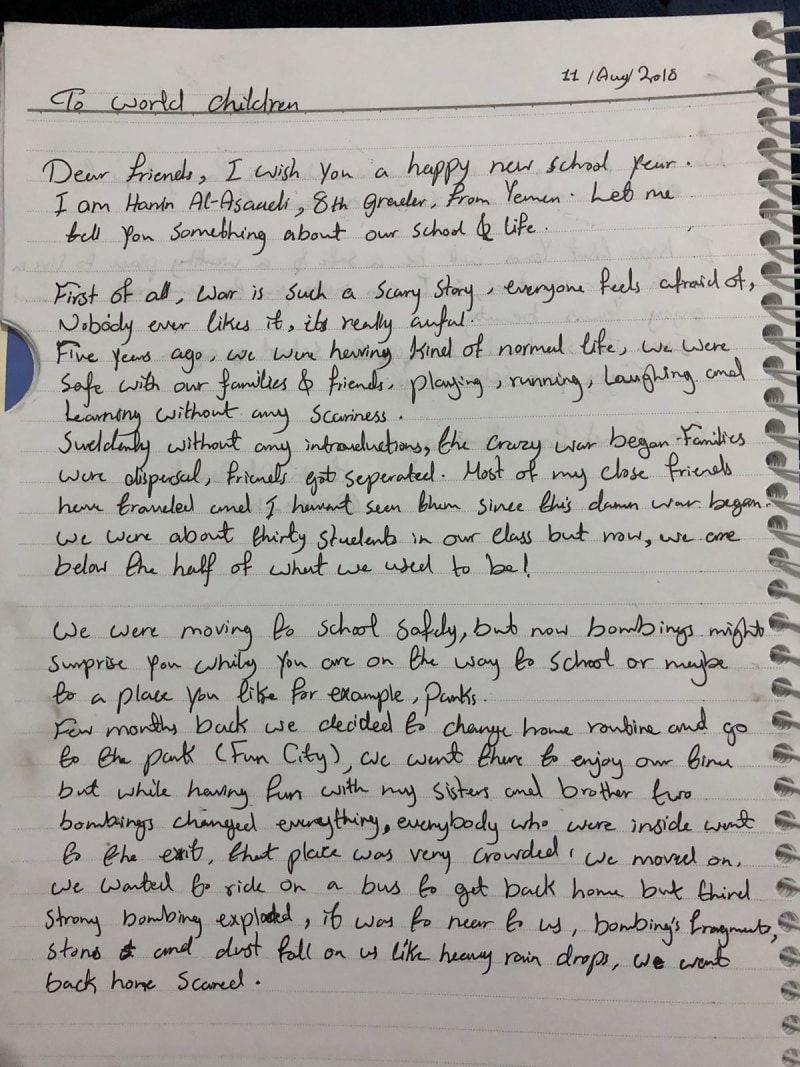 11 / Aug / 2018
To world children
Dear friends, I wish you a happy new school year.
I am Hanin Al-Asaadi, 8th grader, from Yemen. Let me
tell you something about our school & life.
First of all, war is such a scary story, everyone feels afraid of,
Nobody ever likes it, its really awful.
Five years ago, we were having kind of normal life, we were
safe with our families & friends, playing, running, laughing and
learning without any scariness.
Suddenly without any introductions, the crazy war began. Families
were dispersal, friends got seperated. Most of my close friends
have traveled and I havent seen them since this damn war began.
we were about thirty students in our class but now, we are
below the half of what we used to be!
We were moving to school safely, but now bombings might
surprise you whily you are on the way to school or maybe
to a place you like for example, parks.
Few months back we decided to change home routine and go
to the park (Fun City), we went there to enjoy our time
but while having fun with my sisters and brother two
bombings changed everything, everybody who were inside went
to the exit, that place was very crowded, we moved on,
we wanted to ride on a bus to get back home but third
strong bombing exploded, it was to near to us, bombing's fragments,
stons and dust fall on us like heavy rain drops, we went
back home scared.